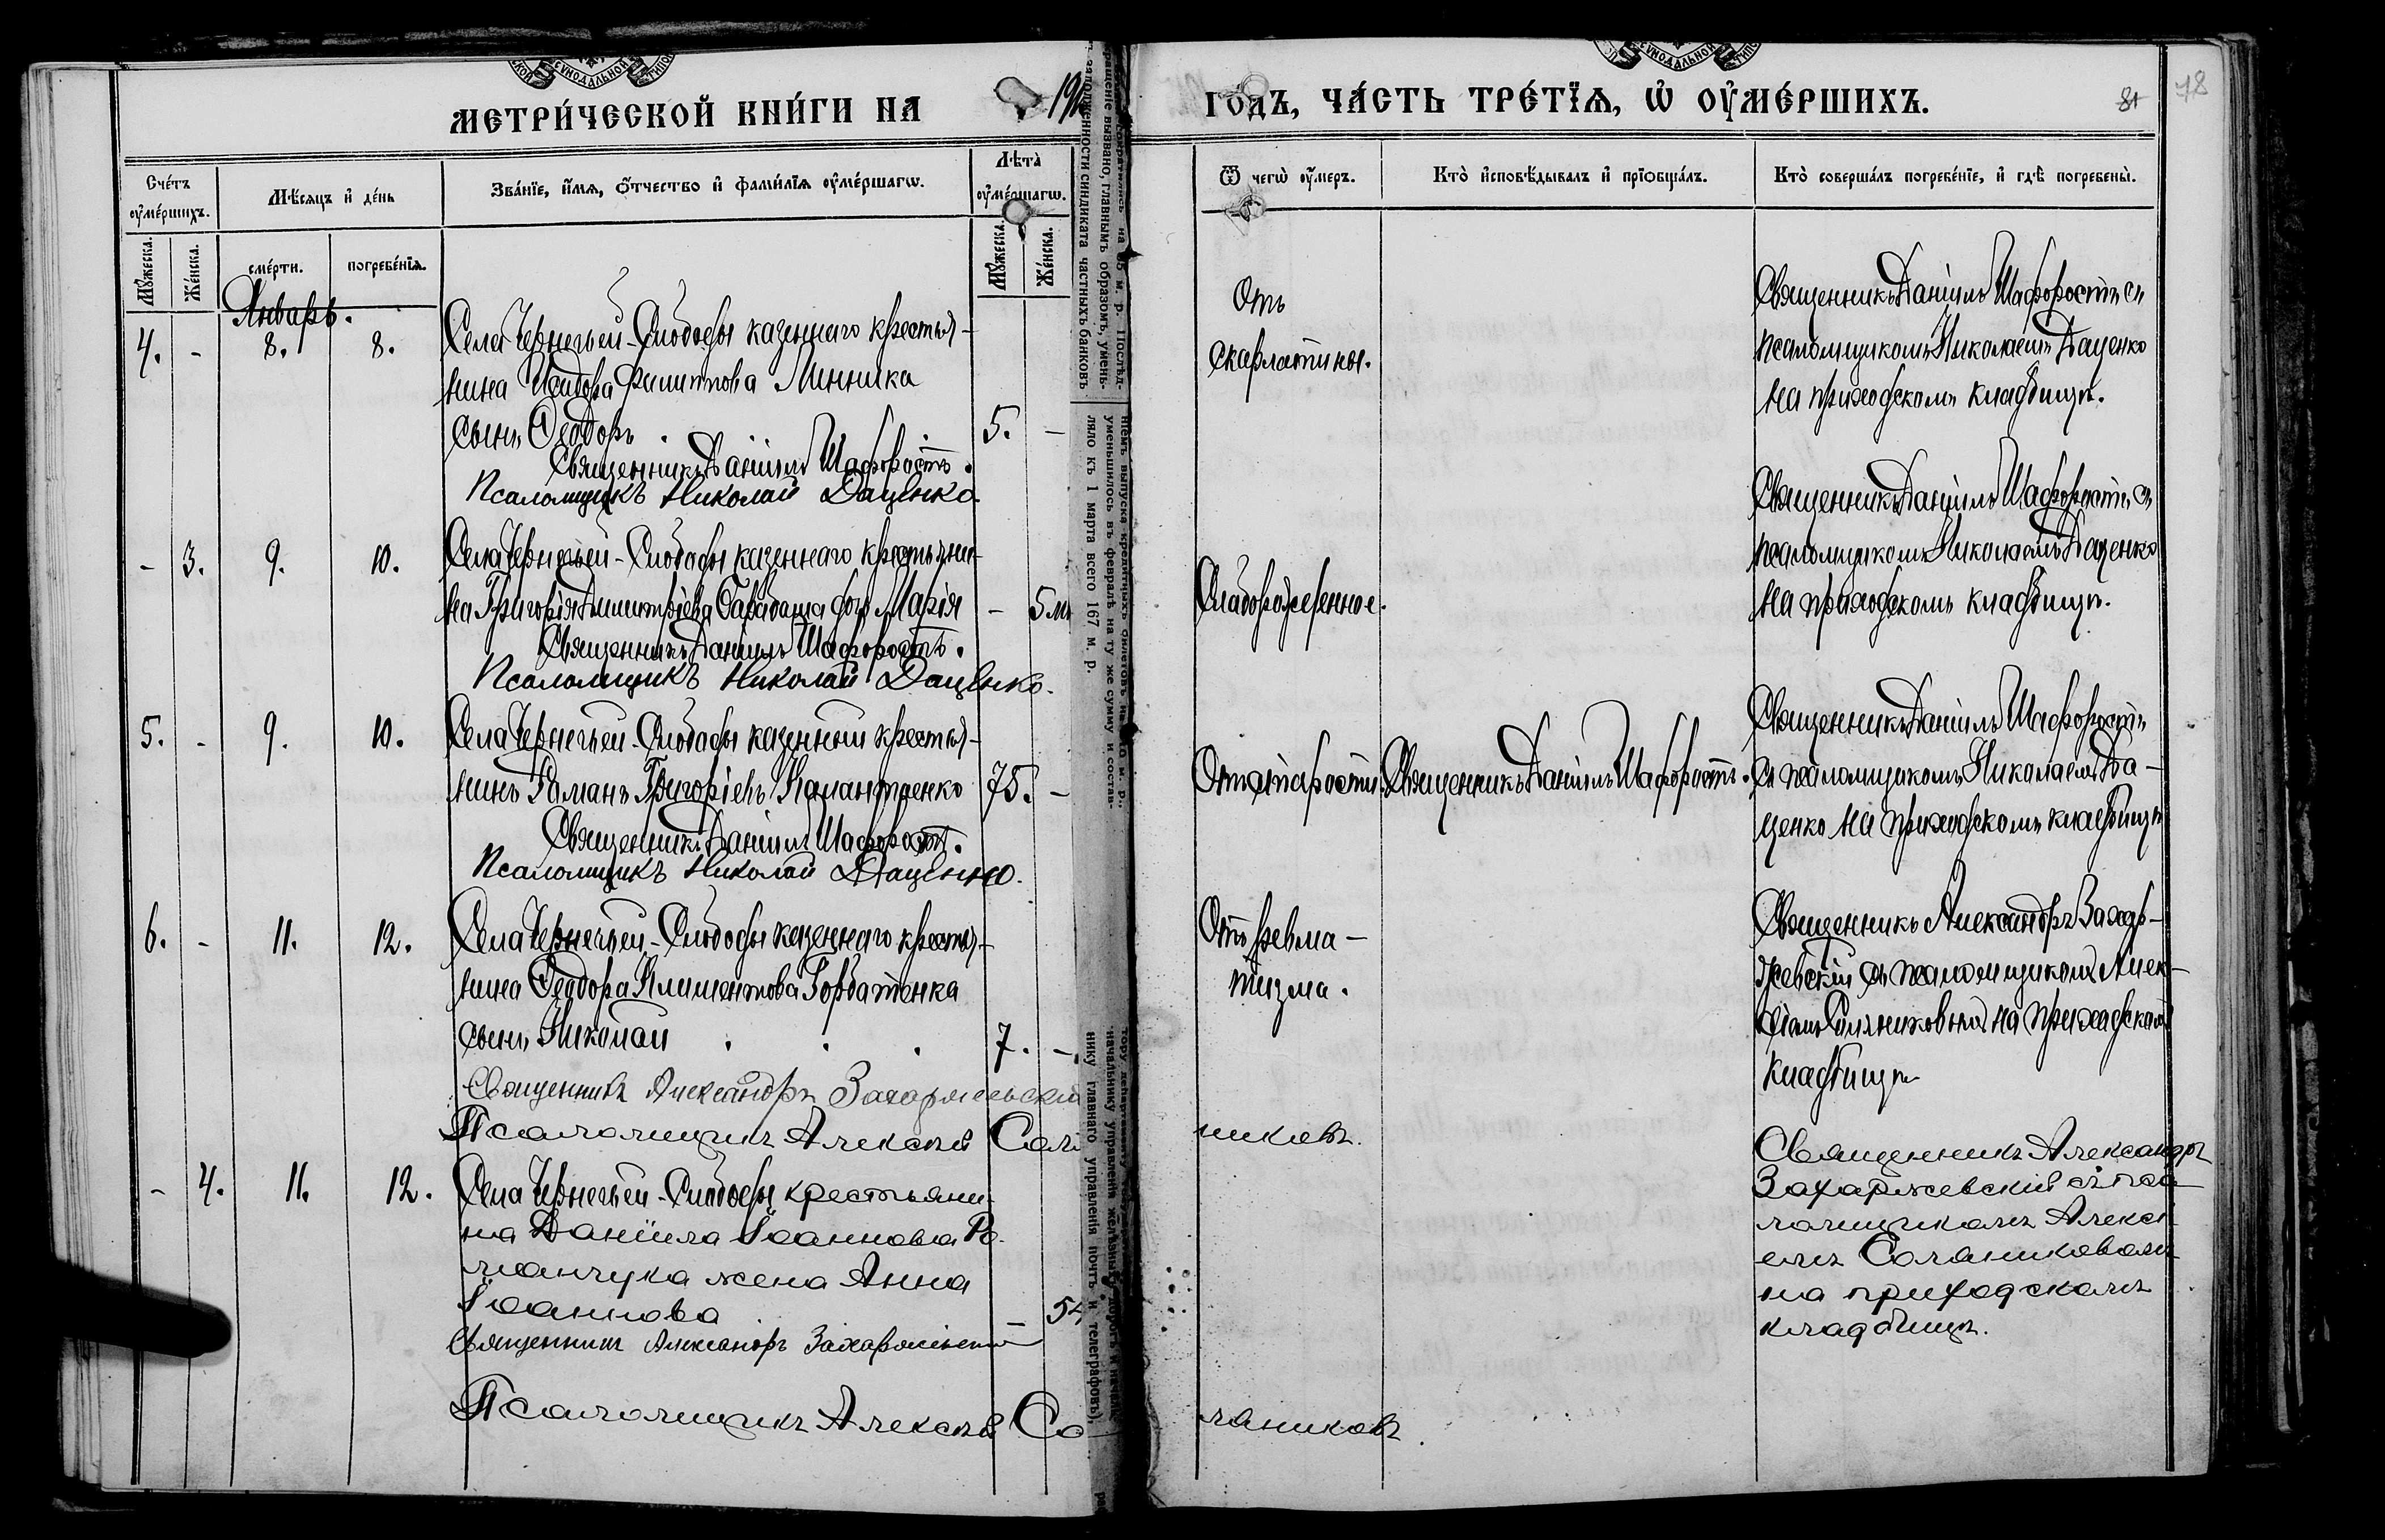 МЕТРИ́ЧЕСКОЙ КНИ́ГИ НА
191
ГОДЪ, ЧА́СТЬ ТРЕ́ТЇѦ, Ѡ҆ ОУ҆МЕ́РШИХЪ.
81
78
Сче́тъ оу҆ме́ршихъ.
Мѣ́сяцъ и҆ де́нь
Зва́нїе, и҆́мѧ, ѻ҆́тчество и҆ фами́лїѧ оу҆ме́ршагѡ.
Лѣ́та̀ оу҆ме́ршагѡ.
Ѿ чегѡ̀ оу҆́меръ.
Кто̀ и҆сповѣ́дывалъ и҆ прїѡбща́лъ.
Кто̀ соверша́лъ погребе́нїе, и҆ гдѣ̀ погребены̀.
Мꙋ́жеска.
Же́нска.
сме́рти.
погребе́нїѧ.
Мꙋ́жеска.
Же́нска.
Январь.
4. - 8. 8.
Села Чернечьей-Слободы казеннаго крестья-
нина Исидора Филиппова Минника
сынъ Ѳеодоръ . . 5. -
Священникъ Даніилъ Шафоростъ.
Псаломщикъ Николай Даценко.
Отъ
скарлатины.
Священникъ Даніилъ Шафоростъ съ
псаломщикомъ Николаемъ Даценко
на приходскомъ кладбищѣ.
- 3. 9. 10.
Села Чернечьей-Слободы казеннаго крестьяни-
на Григорія Димитріева дочь Марія - 5 м
Священникъ Даніилъ Шафоростъ.
Псаломщикъ Николай Даценко.
Слаборожденное.
Священникъ Даніилъ Шафоростъ съ
псаломщикомъ Николаемъ Даценко
на приходскомъ кладбищѣ.
5. - 9. 10.
Села Чернечьей-Слободы казенный крестья-
нинъ Романъ Григоріевъ Калантаенко 75. -
Священникъ Даніилъ Шафоростъ.
Псаломщикъ Николай Даценко.
Отъ старости.
Священникъ Даніилъ Шафоростъ.
Священникъ Даніилъ Шафоростъ
съ псаломщикомъ Николаемъ Да-
ценко на приходскомъ кладбищѣ
6. - 11. 12.
Села Чернечьей-Слободы казеннаго крестья-
нина Ѳеодора Климентова Горбатенка
сынъ Николай . . . 7. -
Священникъ Александръ Захаржевскій
Псаломщикъ Алексѣй Соляниковъ.
Отъ ревма-
тизма.
Священникъ Александръ Захар-
жевскій съ псаломщикомъ Алек-
сіемъ Соляниковымъ на приходскомъ
кладбищѣ
- 4. 11. 12.
Села Чернечьей-Слободы крестьяни-
на Даніила Іоаннова Ро-
манчука жена Анна
Іоаннова - 54
Священникъ Александръ Захаржевскій
Псаломщикъ Алексѣй Солониковъ.
Священникъ Александръ
Захаржевскій съ пса-
ломщикомъ Алексѣ-
емъ Солониковомъ
на приходскомъ
кладбищѣ.
ращеніе вызвано, главнымъ образомъ, умень-
задолженности синдиката частныхъ банковъ
ніемъ выпуска кредитныхъ билетовъ на
уменьшилось въ февралѣ на ту же сумму и состав-
ляло къ 1 марта всего 167 м. р.
начальнику управленія желѣзныхъ дорогъ и началь-
нику главнаго управленія почтъ и телеграфовъ),